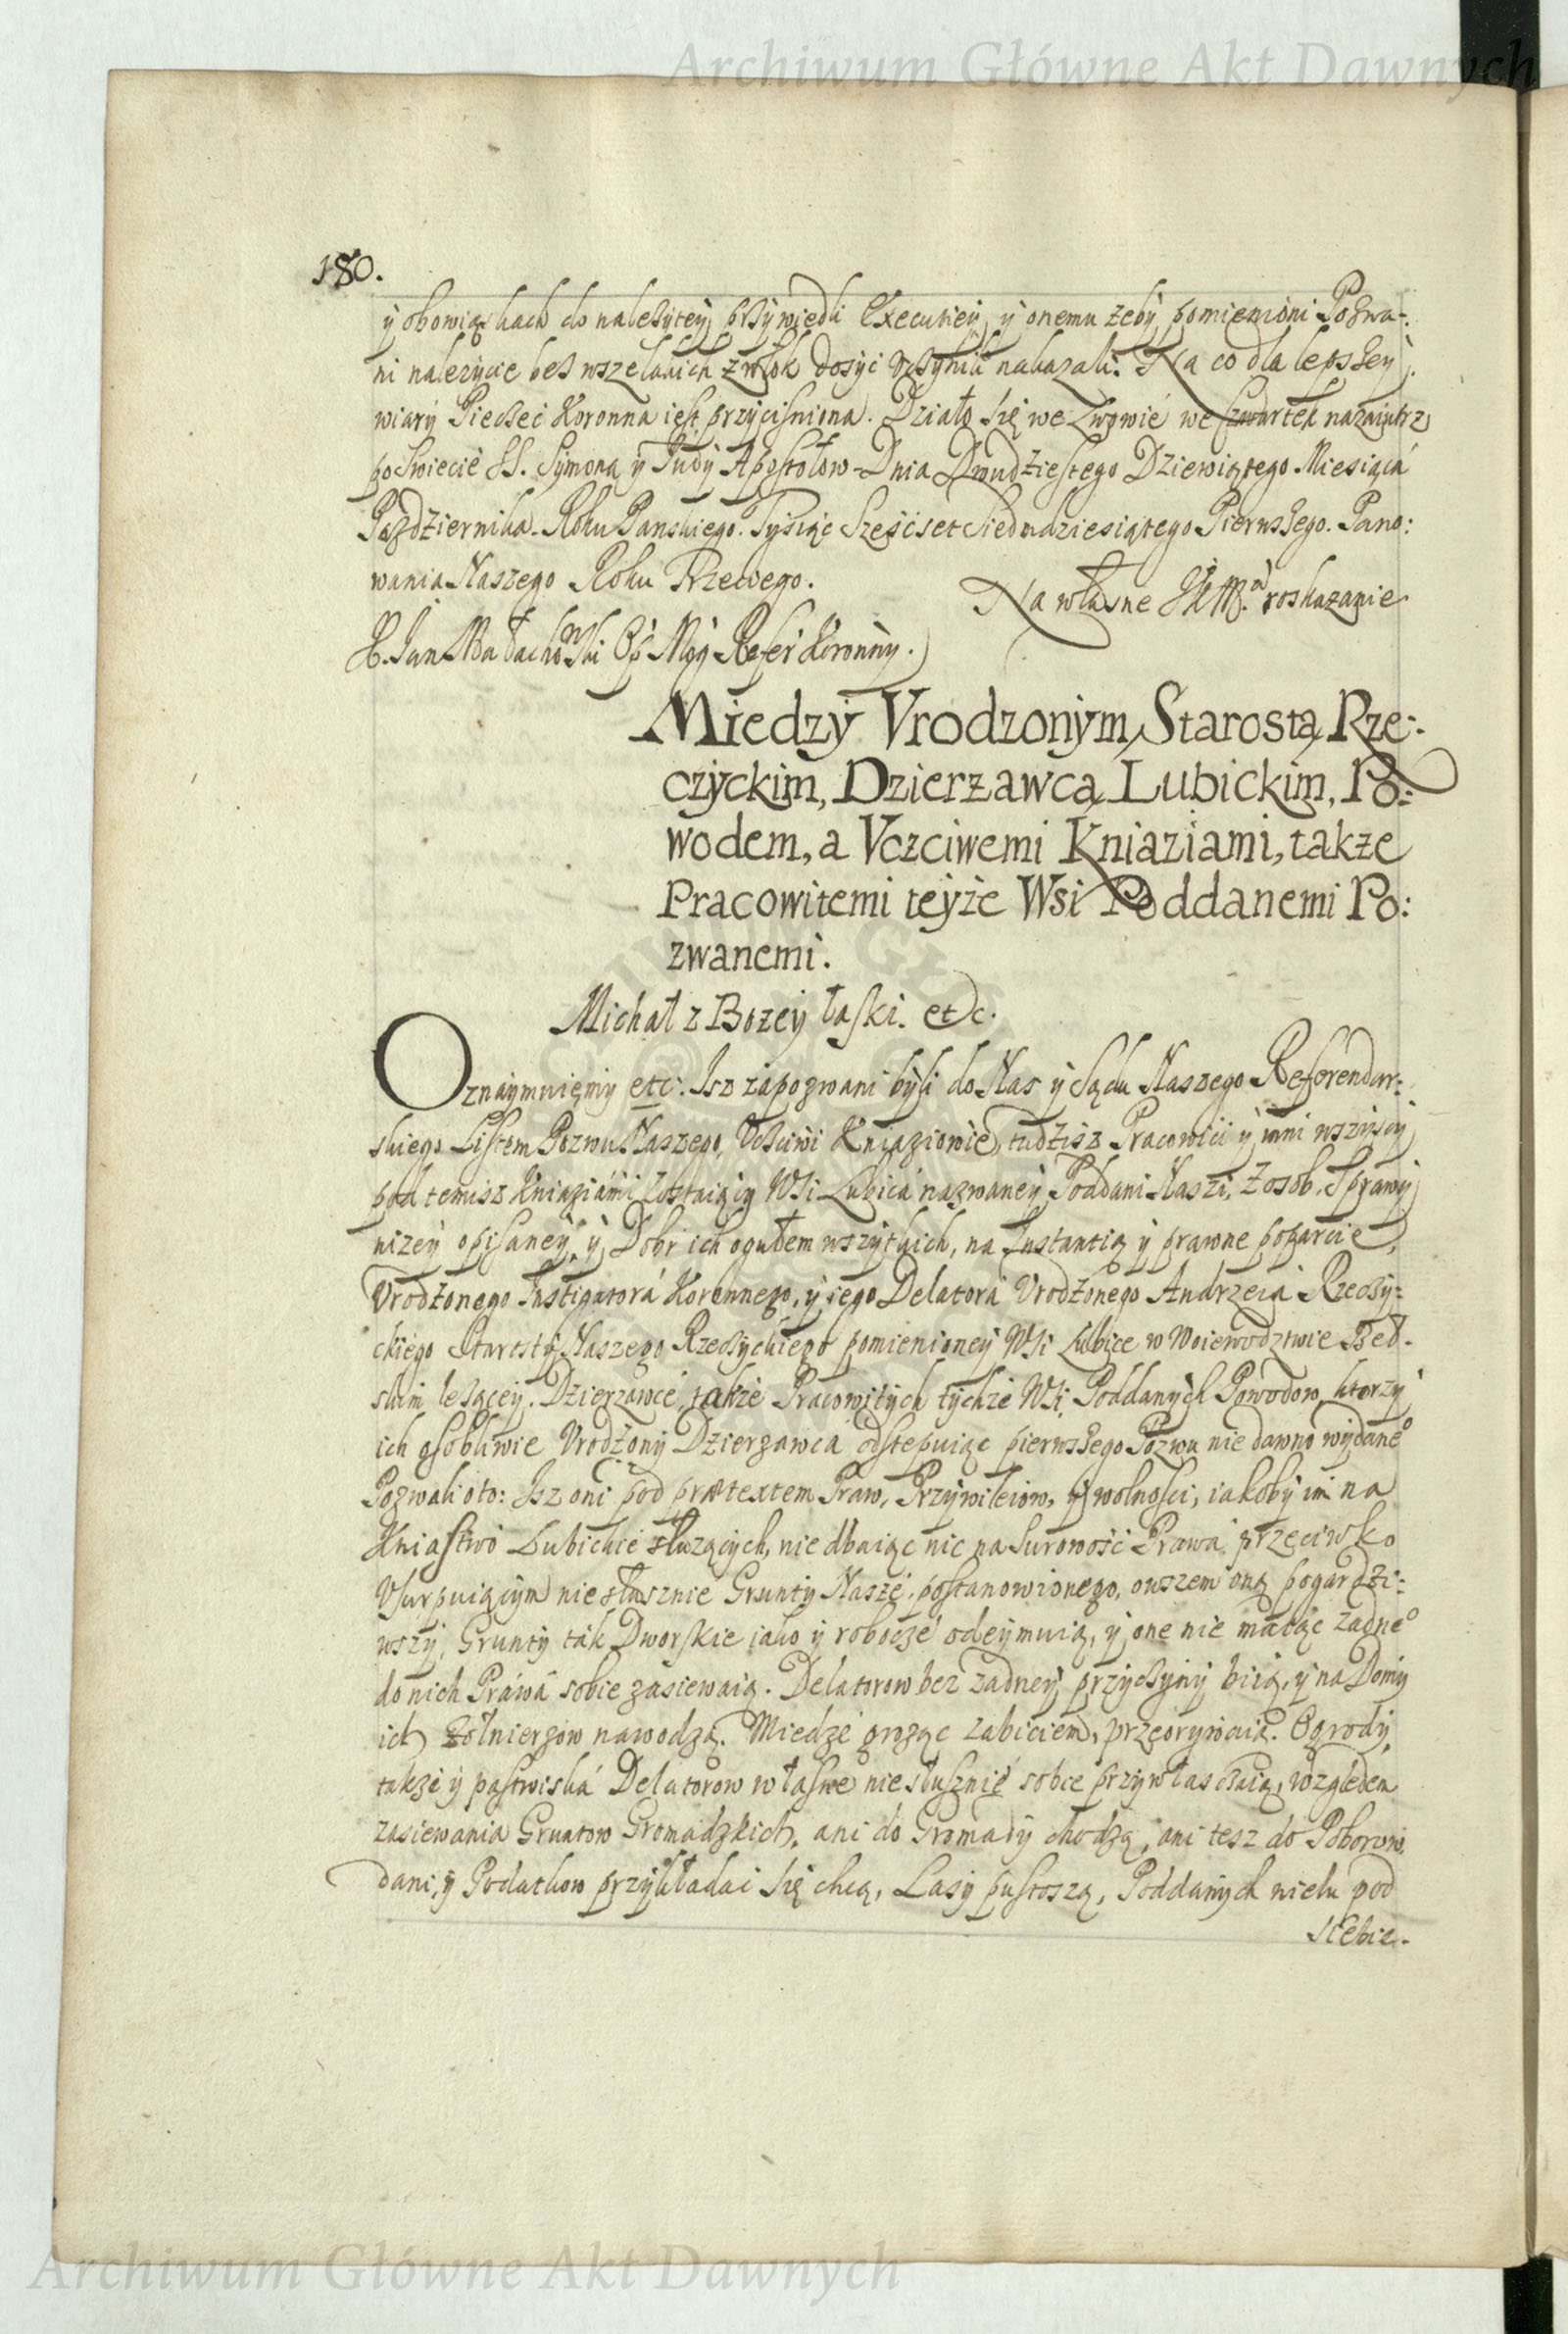 Archiwum Główne Akt Dawnych
180.
y obowiązkach do nalezytey przywiedli Executiey, y onemu żeby pomienioni Pozwa-
ni nalezycie bes wszelakich zwłok dosyć vczynili nakazali. Na co dla lepszey
wiary Pieczęć Koronna iest przyciśniona. Działo się we Lwowie we Czwartek nazaiutrz
po Swięcie SS. Symona y Judy Apostołow Dnia Dwudziestego Dziewiątego Miesiąca
Pazdziernika. Roku Panskiego. Tysiąc Sześćset Siedmdziesiątego Pierwszego. Pano:
wania Naszego Roku Trzeciego.
Na własne JKM. roskazanie
X. Jan Małachowski Op Mog Refer Koronny.
Miedzy Vrodzonym Starostą Rze:
czyckim, Dzierzawcą Lubickim, Po:
wodem, a Vczciwemi Kniaziami, także
Pracowitemi teyże Wsi Poddanemi Po:
zwanemi.
Michał z Bozey łaski. etc.
Oznaymuiemy etc. Isz zapozwani byli do Nas y Sądu Naszego Referendar:
skiego Listem Pozwu Naszego, Vcściwi Kniaziowie, tudzisz Pracowici y inni wszyscy
pod temisz Kniaziami zostaiący Wsi Lubica nazwaney Poddani Naszi, z osob, Sprawy
nizey opisaney, y Dobr ich ogułem wszytkich, na Instantią y prawne poparcie,
Vrodzonego Instigatora Koronnego, y iego Delatora Vrodzonego Andrzeia Rzeczy:
ckiego Starosty Naszego Rzeczyckiego pomienioney Wsi Lubice w Woiewodztwie Beł.
skim leżącey. Dzierzawce, także Pracowitych tychże Wsi Poddanych Powodow, ktorzy
ich osobliwie Vrodzony Dzierzawca odstepuiąc pierwszego Pozwu nie dawno wydane°
Pozwali oto: Isz oni pod prætextem Praw, Przywileiow, y wolności, iakoby im na
Kniastwo Lubickie służących, nie dbaiąc nic na Surowość Prawa przeciwko
Vsurpuiącym niesłusznie Grunty Nasze postanowionego, owszem oną pogardzi:
wszy, Grunty tak Dworskie iako y robocze odeymuią, y one nie maiąc żadne°
do nich Prawa sobie zasiewaią. Delatorow bez żadney przyczyny biią, y na Domy
ich Zołnierzow nawodzą. Miedze grożąc zabiciem, przeorywaią. Ogrody,
także y pastwiska Delatorow własne niesłusznie sobie przywłaszczaią, względem
zasiewania Gruntow Gromadzkich, ani do Gromady chodzą, ani tesz do Poborow,
dani, y Podatkow przykładać się chcą, Lasy pustoszą, Poddanych wielu pod
siebie.
Archiwum Główne Akt Dawnych